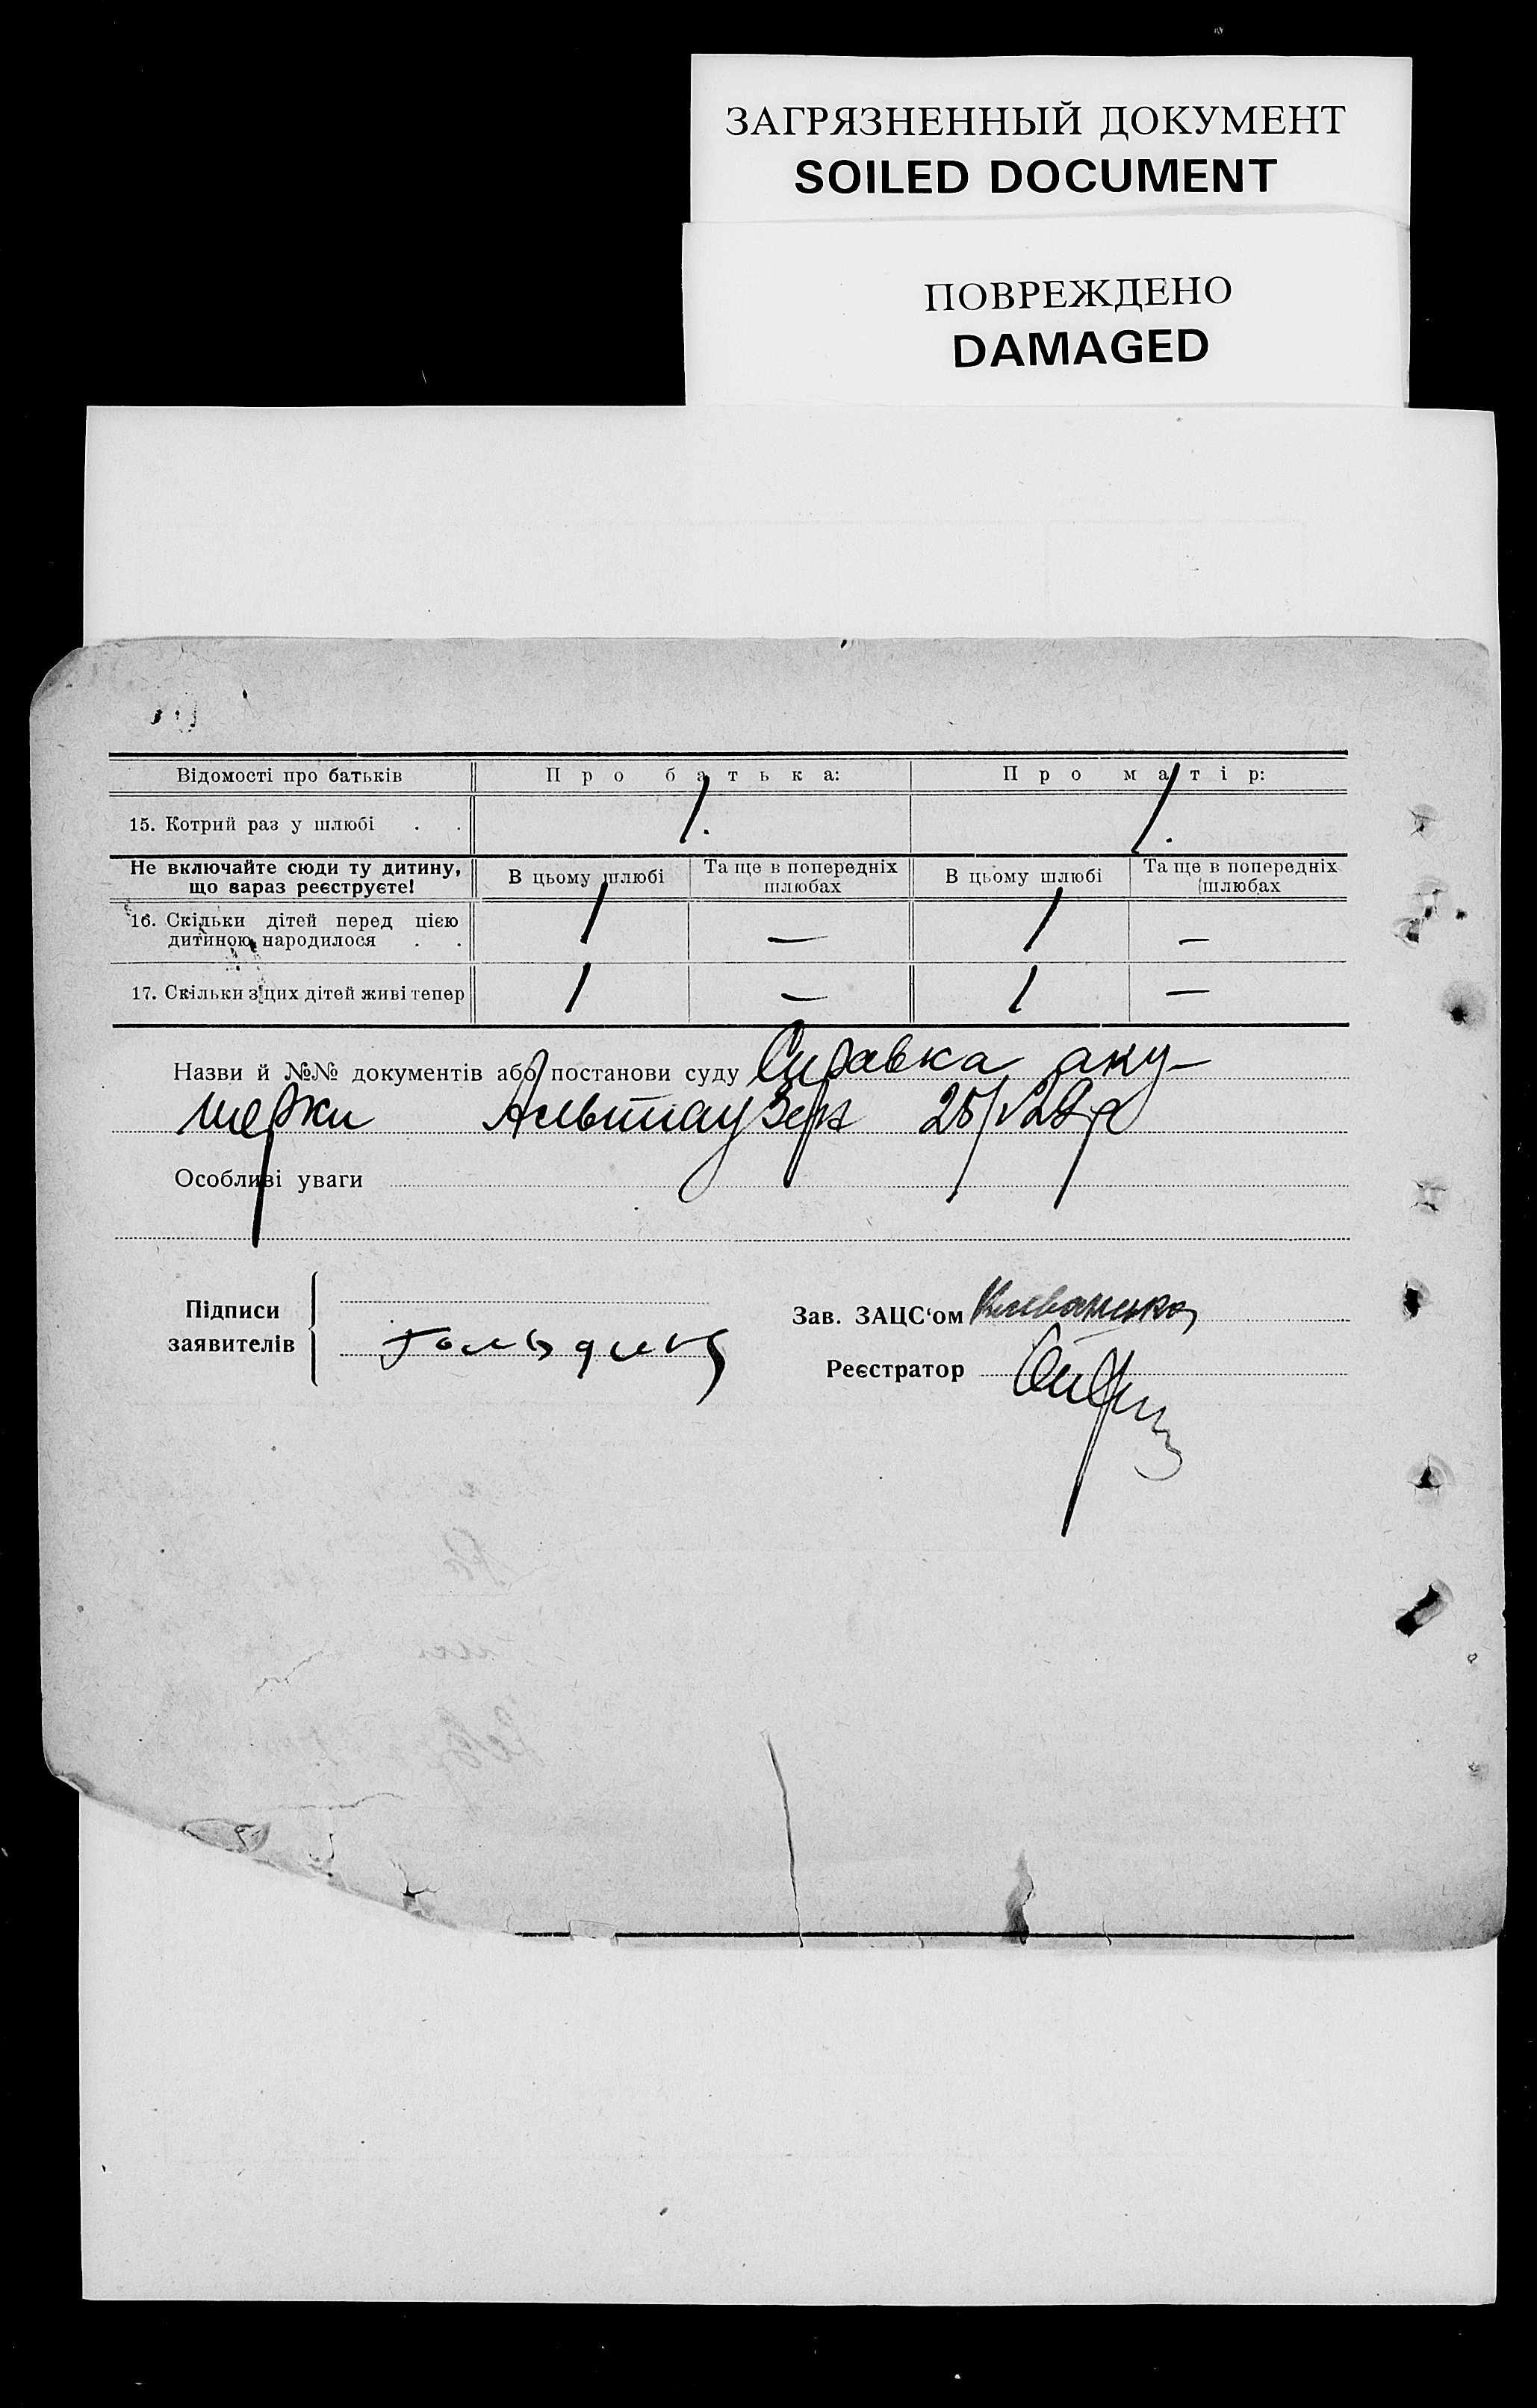 ЗАГРЯЗНЕННЫЙ ДОКУМЕНТ
SOILED DOCUMENT
ПОВРЕЖДЕНО
DAMAGED
Відомості про батьків Про батька: Про матір:
15. Котрий раз у шлюбі . . 1. 1.
Не включайте сюди ту дитину, що вараз реєструєте! В цьому шлюбі Та ще в попередніх шлюбах В цьому шлюбі Та ще в попередніх шлюбах
16. Скільки дітей перед цією
дитиною народилося . . 1 — 1 —
17. Скільки з цих дітей живі тепер 1 — 1 —
Назви й №№ документів або постанови суду Справка аку-
шерки
Особливі уваги
Підписи
заявителів
Зав. ЗАЦС‘ом
Реєстратор